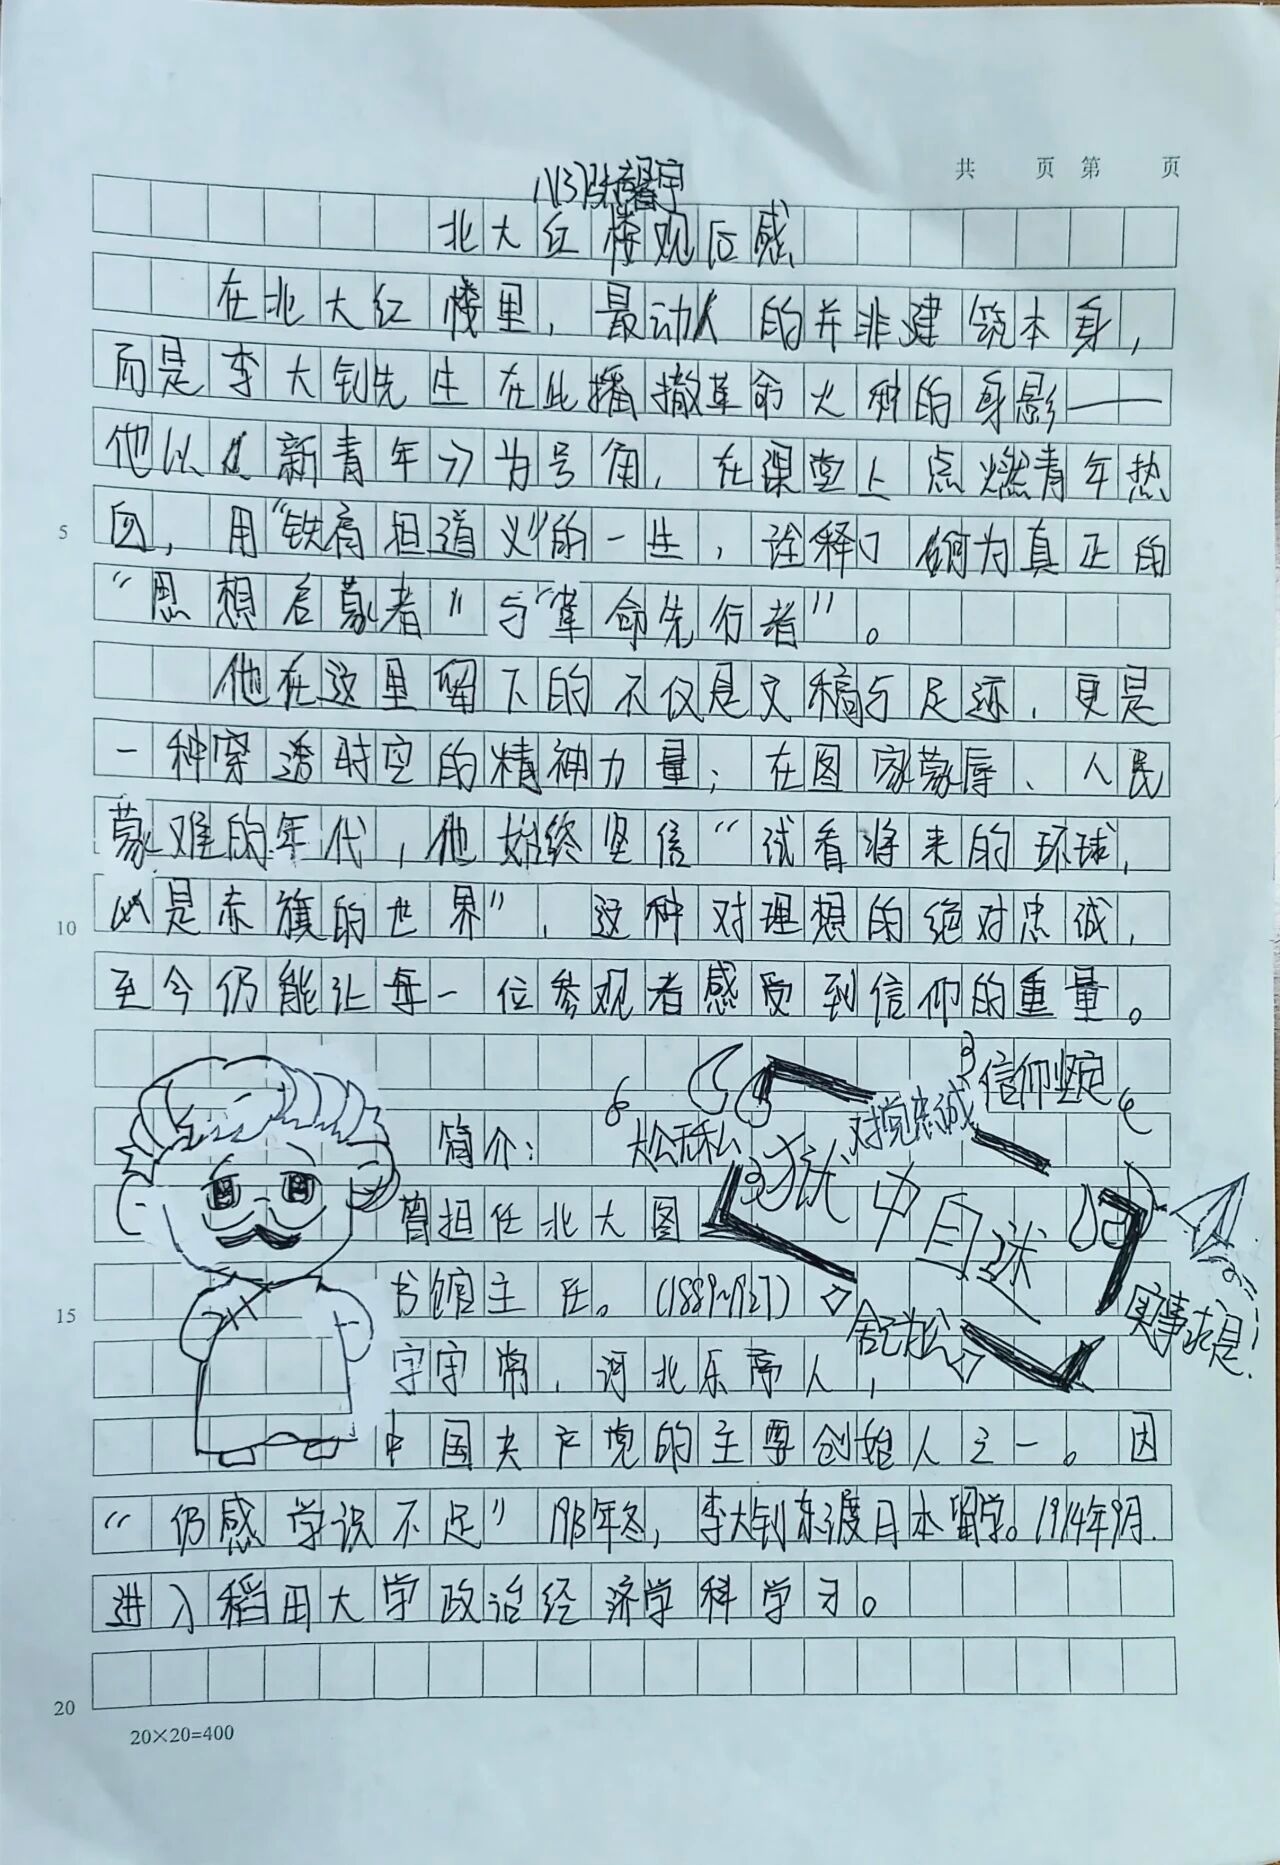 共 页 第 页
北大红楼观后感
在北大红楼里，最动人的并非建筑本身，
而是李大钊先生在此播撒革命火种的身影——
他以《新青年》为号角，在课堂上点燃青年热
血，用“铁肩担道义”的一生，诠释了何为真正的
“思想启蒙者”与“革命先行者”。
他在这里留下的不仅是文稿与足迹，更是
一种穿透时空的精神力量；在国家蒙辱、人民
蒙难的年代，他始终坚信“试看将来的环球，
必是赤旗的世界”，这种对理想的绝对忠诚，
至今仍能让每一位参观者感受到信仰的重量。
信仰坚定
对党忠诚
大公无私
简介：
中
曾担任北大图
书馆主任。(1889~1927)
实事求是
字守常，河北乐亭人，
中国共产党的主要创始人之一。因
“仍感学识不足”1913年冬，李大钊东渡日本留学。1914年9月.
进入稻田大学政治经济学科学习。
5
10
15
20
20×20=400